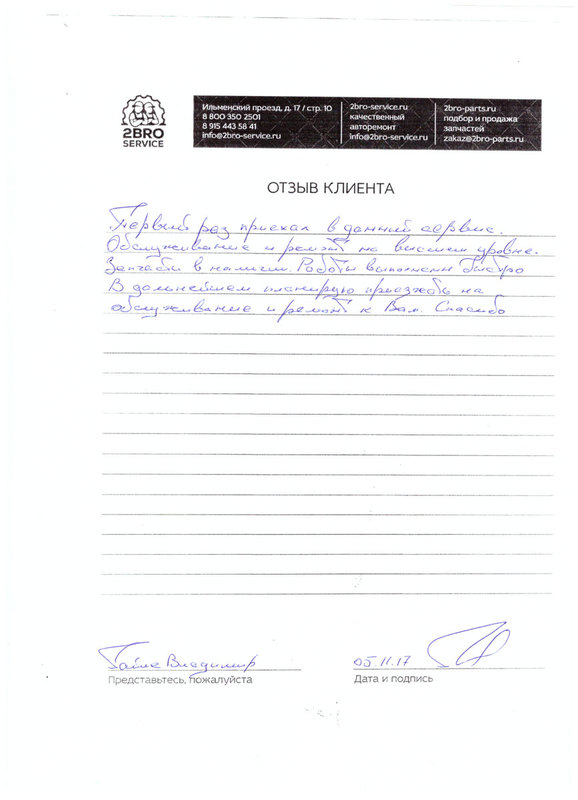 2BRO
SERVICE
Ильменский проезд, д. 17 / стр. 10
8 800 350 2501
8 915 443 58 41
info@2bro-service.ru
2bro-service.ru
качественный
авторемонт
info@2bro-service.ru
2bro-parts.ru
подбор и продажа
запчастей
zakaz@2bro-parts.ru
ОТЗЫВ КЛИЕНТА
Первый раз приехал в данный сервис.
Обслуживание и ремонт на высшем уровне.
Запчасти в наличии. Работы выполнены быстро
В дальнейшем планирую приезжать на
обслуживание и ремонт к Вам. Спасибо
Владимир
05.11.17
Представьтесь, пожалуйста
Дата и подпись